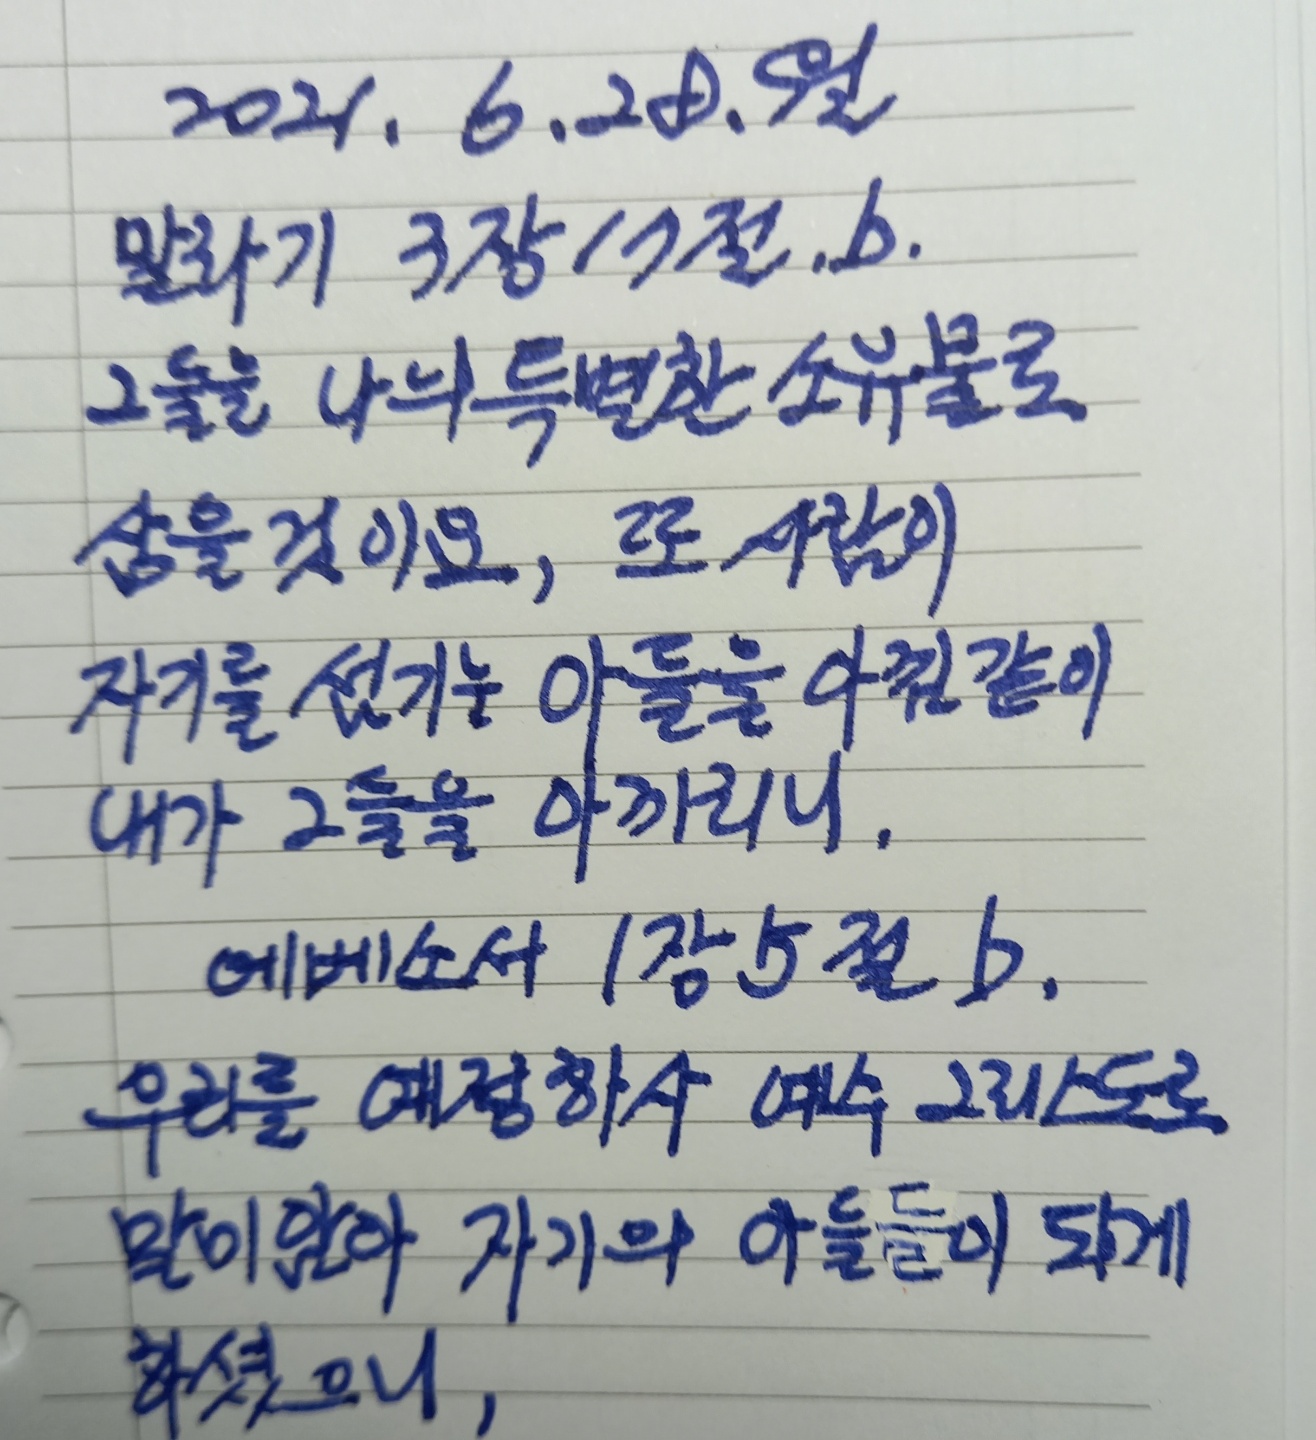 2021. 6. 28. 월
말라기 3장 17절. b.
그들을 나의 특별한 소유물로
삼을 것이요, 또 사람이
자기를 섬기는 아들을 아낌 같이
내가 그들을 아끼리니.
에베소서 1장 5절 b.
우리를 예정하사 예수 그리스도로
말미암아 자기의 아들들이 되게
하셨으니,